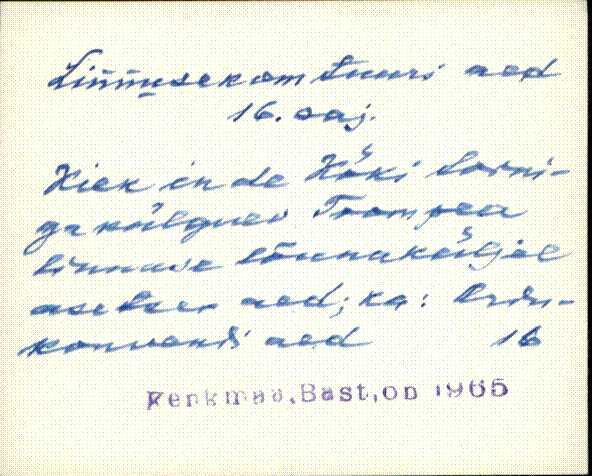 Linnusekomtuuri aed
16. saj.
Kiek in de Köki torni-
ga külgnev Toompea
linnuse lõunaküljel
asetsev aed; ka: Ordu-
konvendi aed 16
Kenkmaa, Bastion 1965